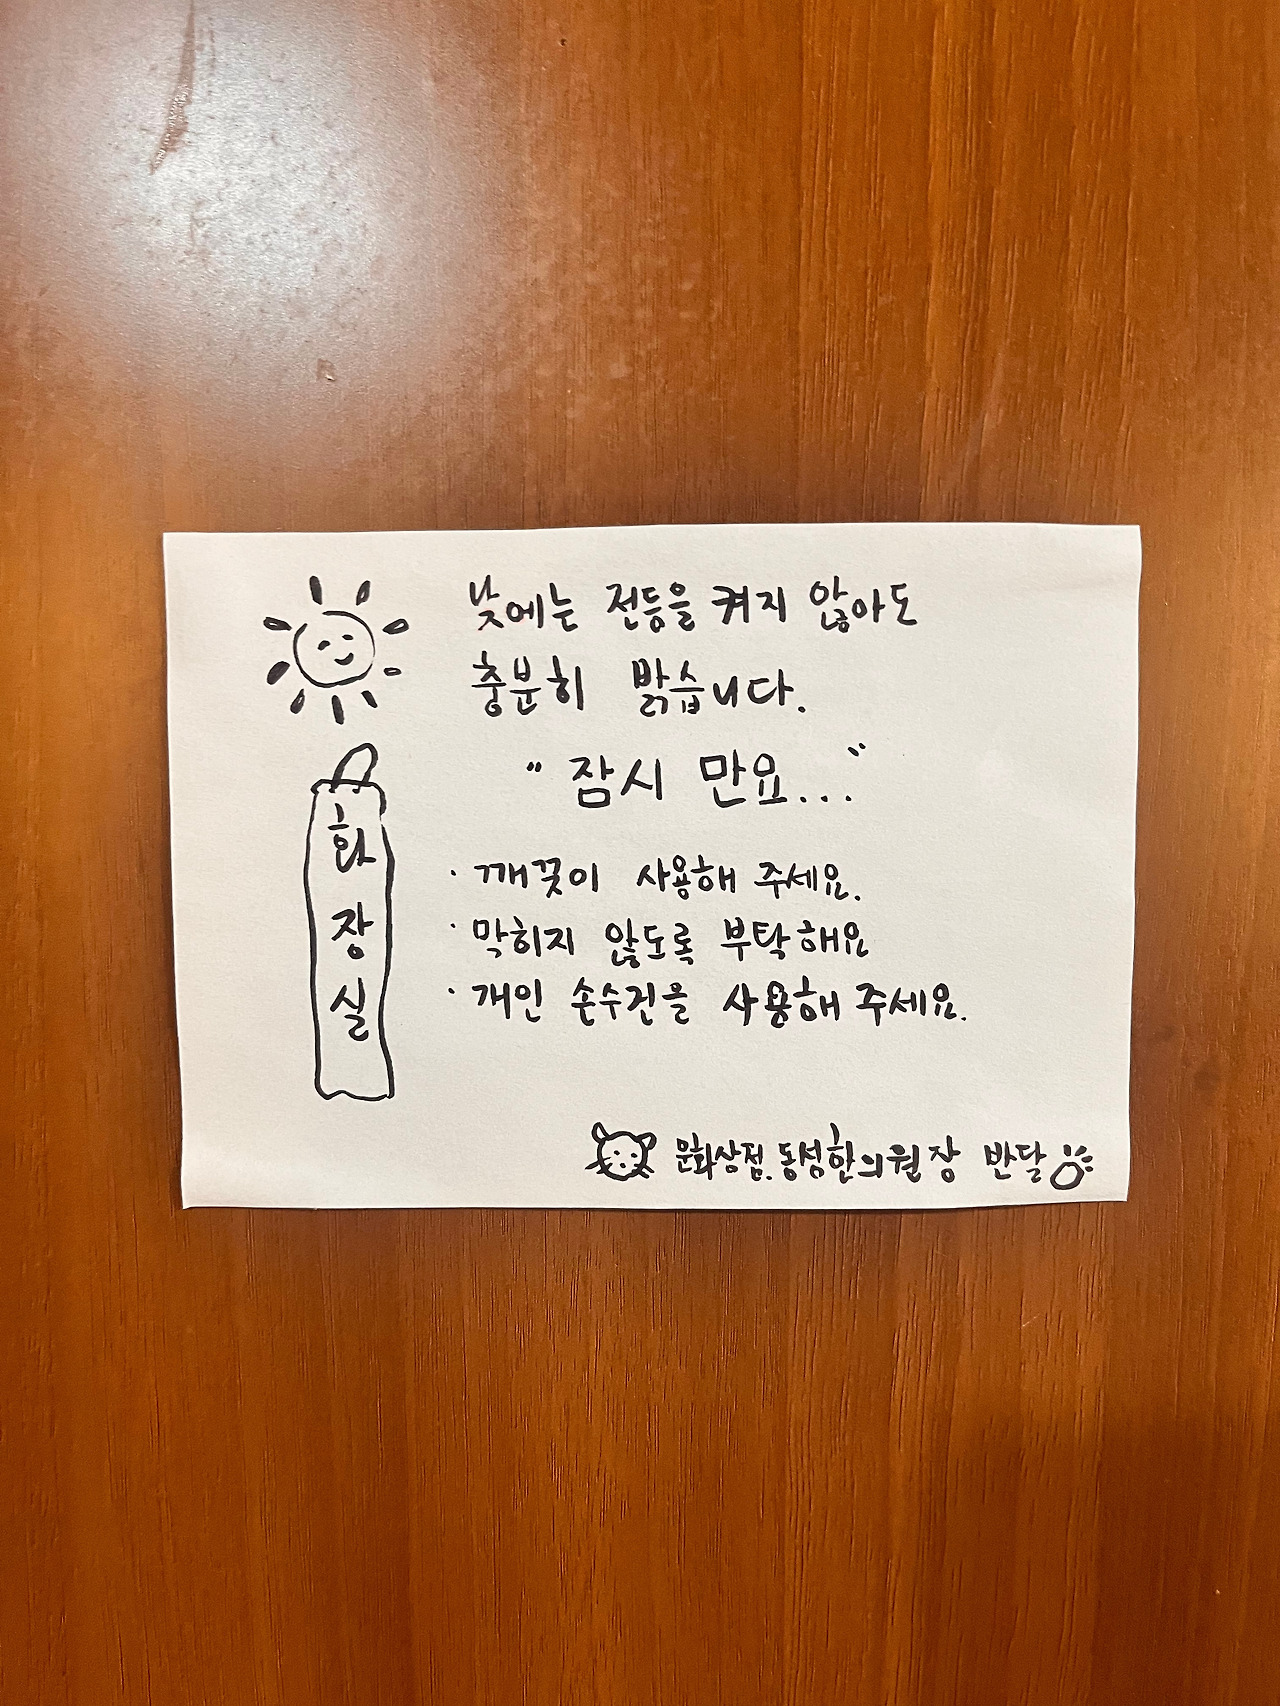 낮에는 전등을 켜지 않아도
충분히 밝습니다.
“잠시 만요...”
화
장
실
· 깨끗이 사용해 주세요.
· 막히지 않도록 부탁해요
· 개인 손수건을 사용해 주세요.
문화상점.동성한의원장 반달